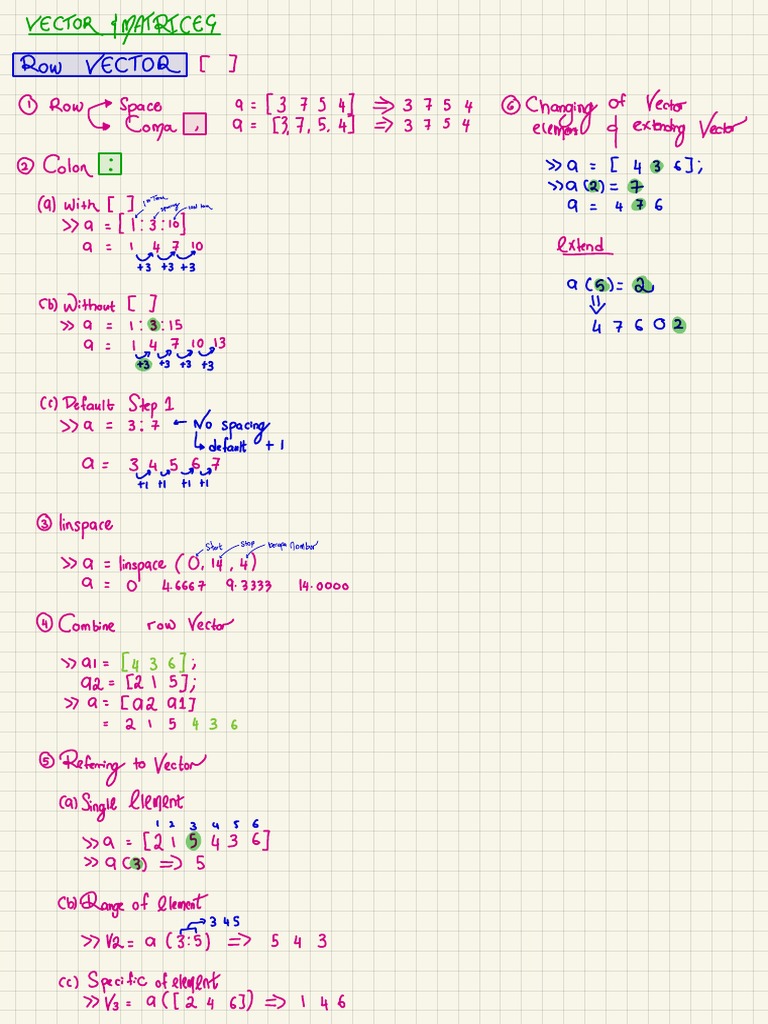 VECTOR & MATRICES
ROW VECTOR [ ]
① Row Space a = [3 7 5 4] ⇒ 3 7 5 4
Coma , a = [3,7,5,4] ⇒ 3 7 5 4
② Colon :
(a) With [ ]
1st Term spacing last term
>> a = [1:3:10]
a = 1 4 7 10
+3 +3 +3
(b) Without [ ]
>> a = 1:3:15
a = 1 4 7 10 13
+3 +3 +3 +3
(c) Default Step 1
>> a = 3:7 ← No spacing
default +1
a = 3 4 5 6 7
+1 +1 +1 +1
③ linspace
Start Stop Number
>> a = linspace (0,14,4)
a = 0 4.6667 9.3333 14.0000
④ Combine row Vector
>> a1 = [4 3 6];
a2 = [2 1 5];
>> a = [a2 a1]
= 2 1 5 4 3 6
⑤ Referring to Vector
(a) Single Element
1 2 3 4 5 6
>> a = [2 1 5 4 3 6]
>> a(3) ⇒ 5
(b) Range of Element
3 4 5
>> V2 = a (3:5) ⇒ 5 4 3
(c) Specific of element
>> V3 = a([2 4 6]) ⇒ 1 4 6
⑥ Changing of Vector
element & extending Vector
>> a = [ 4 3 6];
>> a(2) = 7
a = 4 7 6
Extend
a(5) = 2
⇓
4 7 6 0 2